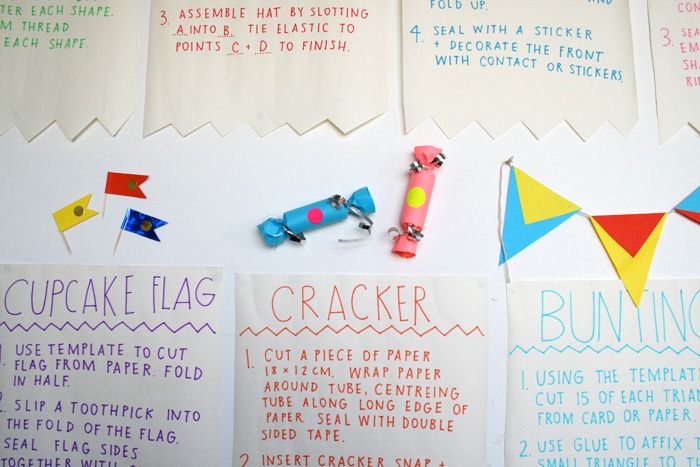 UTER EACH SHAPE.
M THREAD
EACH SHAPE.
3. ASSEMBLE HAT BY SLOTTING
A INTO B. TIE ELASTIC TO
POINTS C + D TO FINISH.
FOLD UP.
4. SEAL WITH A STICKER
+ DECORATE THE FRONT
WITH CONTACT OR STICKERS.
3.
CUPCAKE FLAG
1. USE TEMPLATE TO CUT
FLAG FROM PAPER. FOLD
IN HALF.
2. SLIP A TOOTHPICK INTO
THE FOLD OF THE FLAG.
SEAL FLAG SIDES
CRACKER
1. CUT A PIECE OF PAPER
18 × 12 CM. WRAP PAPER
AROUND TUBE, CENTREING
TUBE ALONG LONG EDGE OF
PAPER. SEAL WITH DOUBLE
SIDED TAPE.
2. INSERT CRACKER SNAP +
BUNTING
1. USING THE TEMPLAT
CUT 15 OF EACH TRIAN
FROM CARD OR PAPER
2. USE GLUE TO AFFIX T
SMALL TRIANGLE TO T